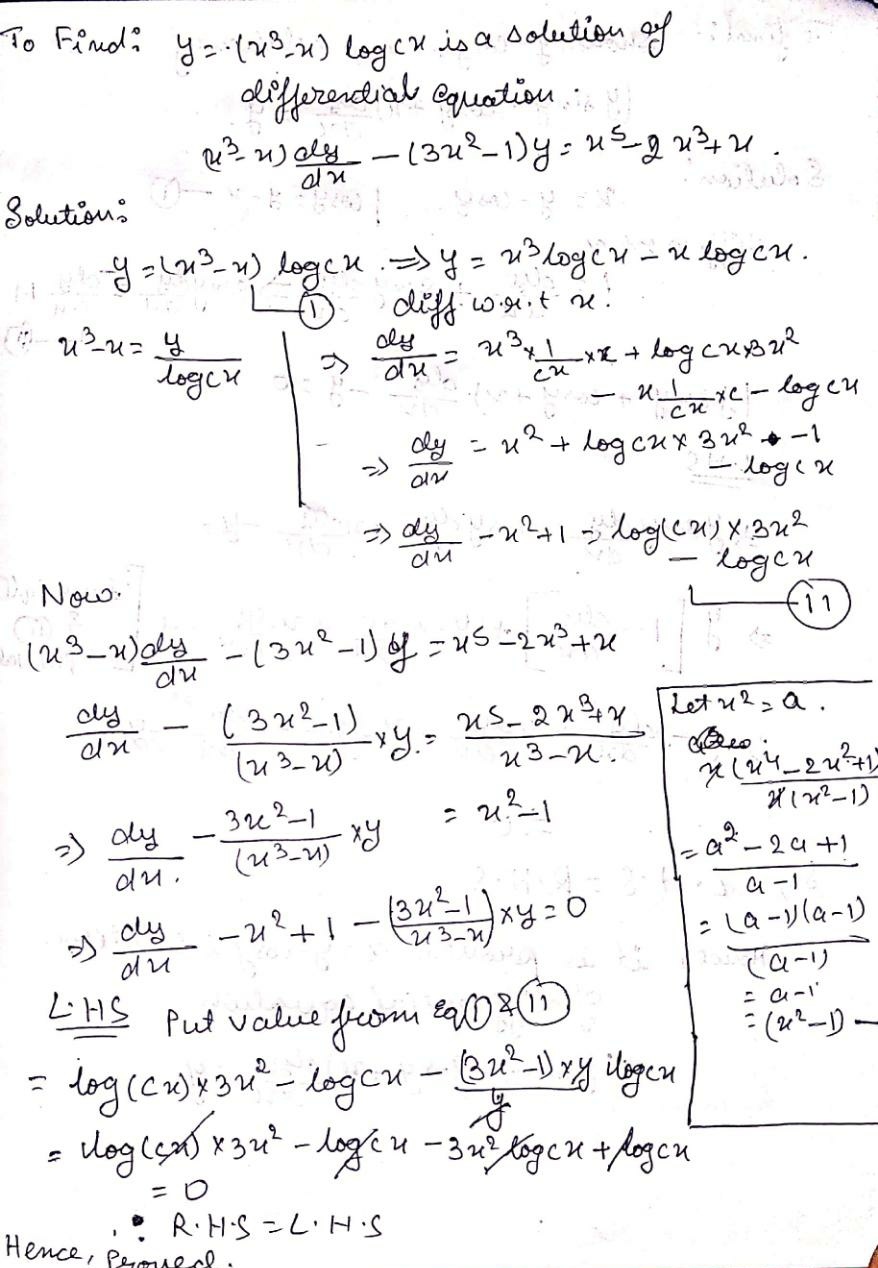 To Find: y = (x³-x) log cx is a solution of
differential equation.
x³-x) dy/dx - (3x²-1)y = x⁵-2x³+x.
Solution:
y = (x³-x) log cx. ⇒ y = x³ log cx - x log cx.
(1) diff w.r.t x:
x³-x = y/log cx
⇒ dy/dx = x³ × 1/cx × c + log cx × 3x²
- x 1/cx × c - log cx
⇒ dy/dx = x² + log cx × 3x² - 1
- log cx
⇒ dy/dx - x² + 1 = log(cx) × 3x²
- log cx
(11)
Now.
(x³-x) dy/dx - (3x²-1) y = x⁵ - 2x³ + x
dy/dx - (3x²-1)/(x³-x) × y = x⁵ - 2x³ + x/x³-x.
⇒ dy/dx. - 3x²-1/(x³-x) × y = x²-1
⇒ dy/dx - x² + 1 - (3x²-1)/(x³-x) × y = 0
L.HS Put value from Eq (1) & (11)
= log(cx) × 3x² - log cx - (3x²-1) × y log cx/y
= log(cx) × 3x² - log cx - 3x² log cx + log cx
= 0
∴ R.H.S = L.H.S
Hence, Proved.
Let x² = a.
x(x⁴ - 2x² + 1)/x(x²-1)
= a² - 2a + 1/a-1
= (a-1)(a-1)/(a-1)
= a-1
= (x²-1) —